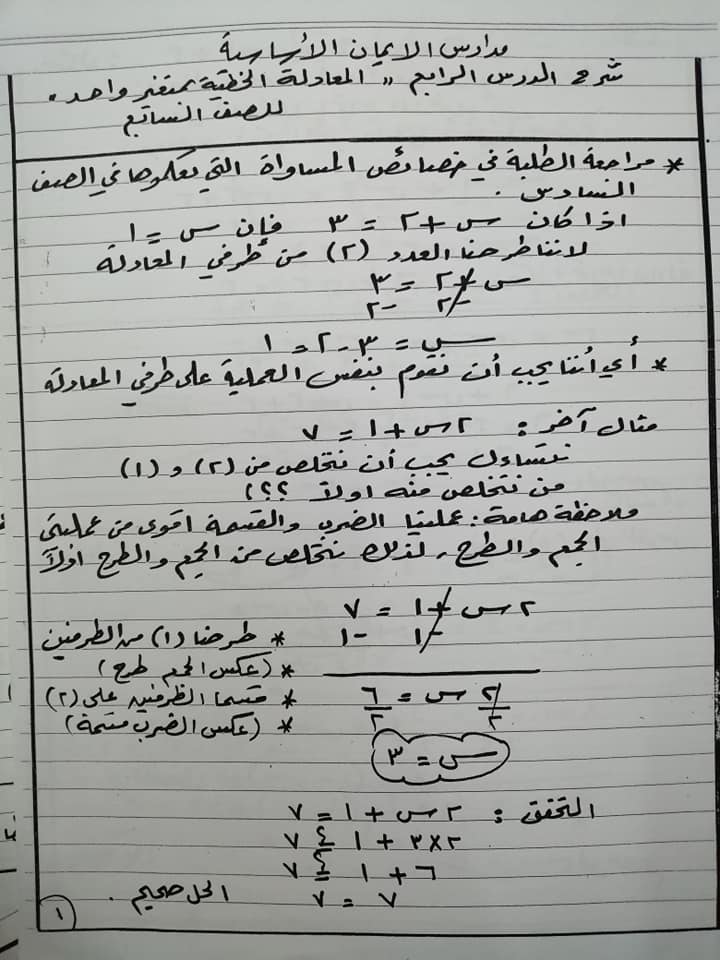 مدارس الايمان الأساسية
شرح الدرس الرابع " المعادلة الخطية بمتغير واحد.
للصف السابع
* مراجعة الطلبة في خصائص المساواة التي تعلموها في الصف
السادس .
اذا كان س + ٢ = ٣ فإن س = ١
لاننا طرحنا العدد (٢) من طرفي المعادلة
س + ٢ = ٣
-٢ -٢
س = ٣ - ٢ = ١
* أي أننا يجب أن نقوم بنفس العملية على طرفي المعادلة
مثال آخر : ٢س + ١ = ٧
نتساءل يجب أن نتخلص من (٢) و (١)
من نتخلص منه اولاً ؟؟!
ملاحظة هامة : عمليتا الضرب والقسمة اقوى من عمليتي
الجمع والطرح ، لذلك نتخلص من الجمع والطرح اولاً
٢س + ١ = ٧
-١ -١ * طرحنا (١) من الطرفين
* (عكس الجمع طرح)
٢س = ٦ * قسمنا الطرفين على (٢)
٢ ٢ * (عكس الضرب قسمة)
س = ٣
التحقق : ٢س + ١ = ٧
٢×٣ + ١ ≟ ٧
٦ + ١ ≟ ٧
٧ = ٧ الحل صحيح .
١